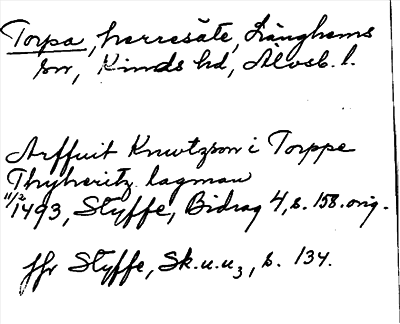 Torpa, herresäte, Länghems
sn, Kinds hd, Älvsb. l.
Arffuit Knwtzson i Torppe
Thyheritz lagman
11/2 1493, Styffe, Bidrag 4, s. 158. orig.
jfr Styffe, Sk.u.u3, s. 134.